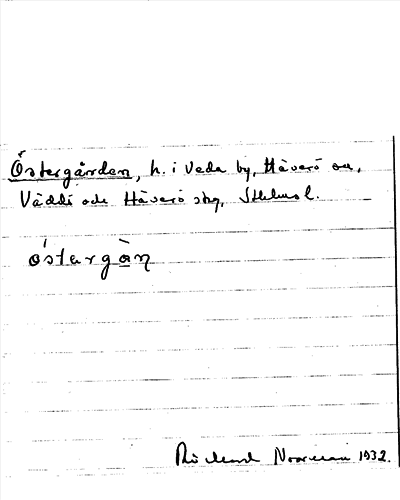 Östergården, h. i Veda by, Häverö sn,
Väddö och Häverö skg, Sthlms l.
östargà̱ṇ
Rickard Norrman 1932.